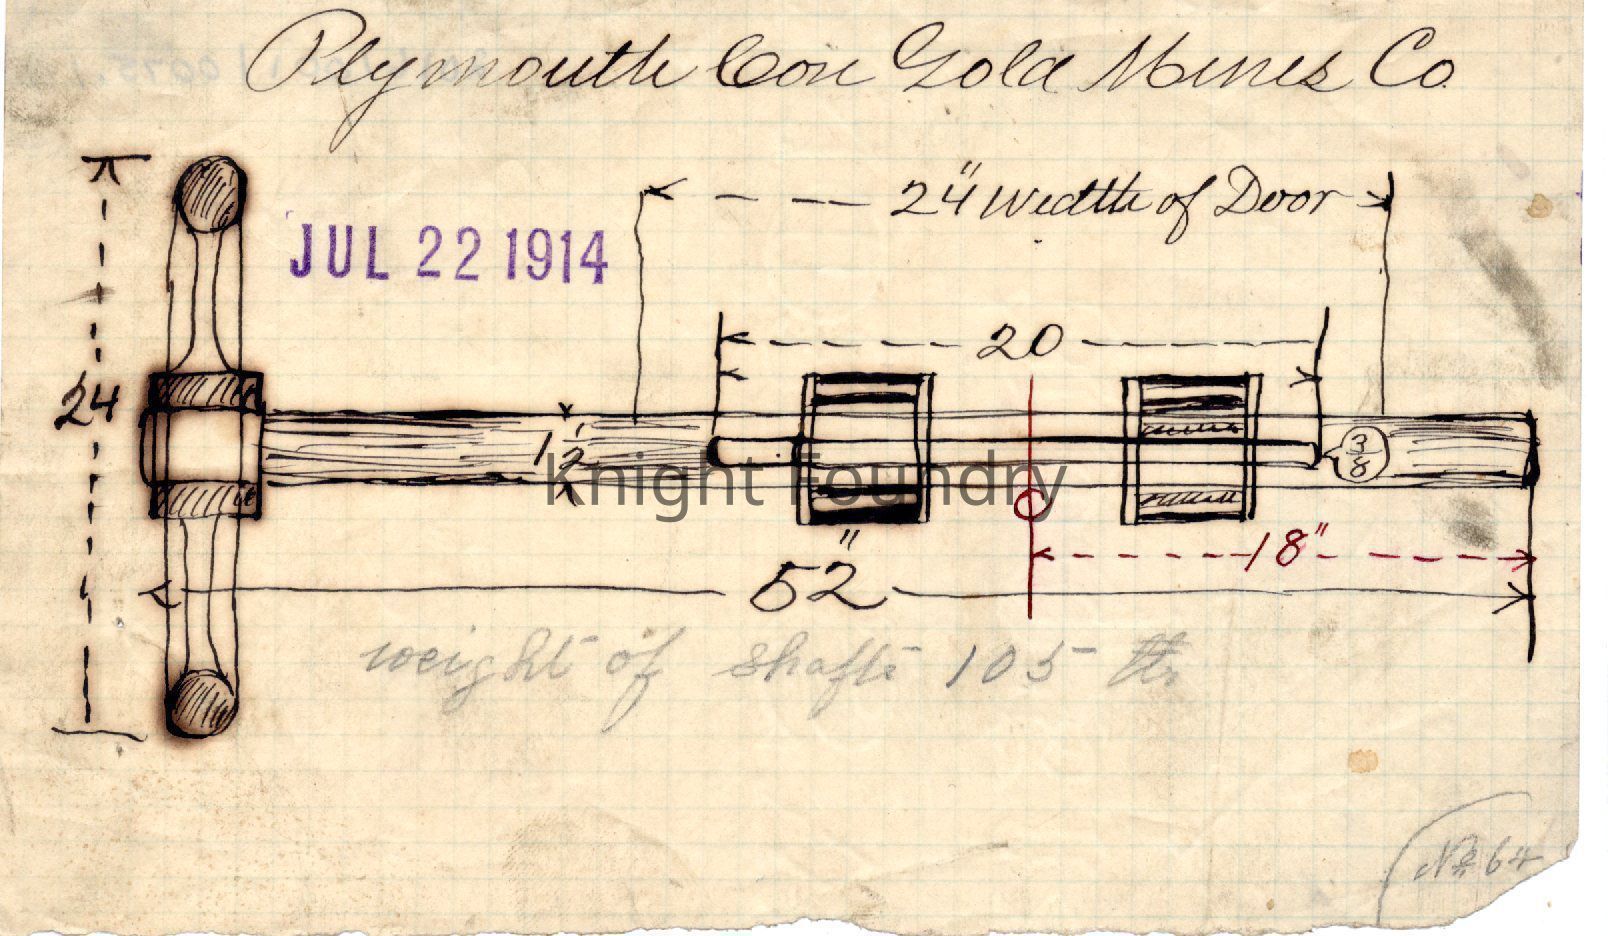 Plymouth Con Gold Mines Co.
24" Width of Door
JUL 22 1914
20
24
1 1/2
3/8
Knight Foundry
18"
52"
weight of shafts 105 lbs
No 64